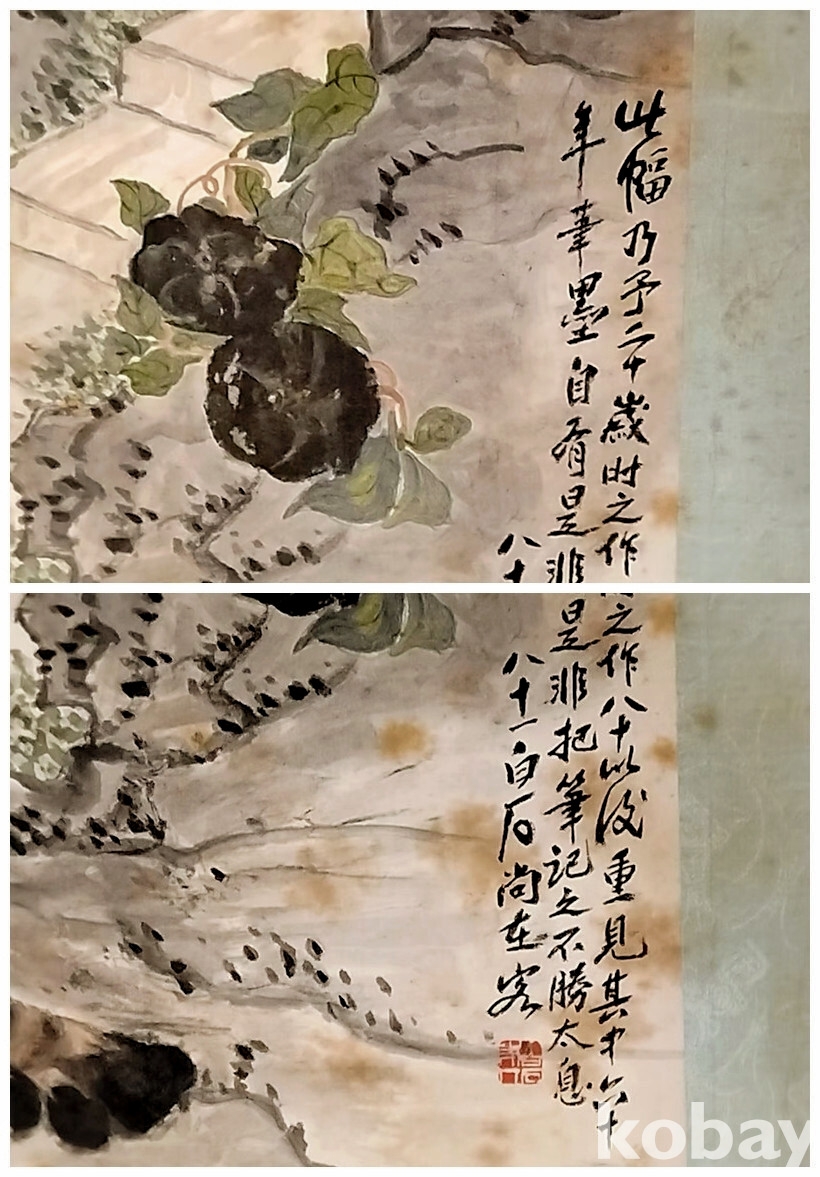 此幅乃予二十歲时之作
年筆墨自有是非
八十
之作八十以後重見其中六十
是非把筆記之不勝太息
八十一白石尚在客
kobay